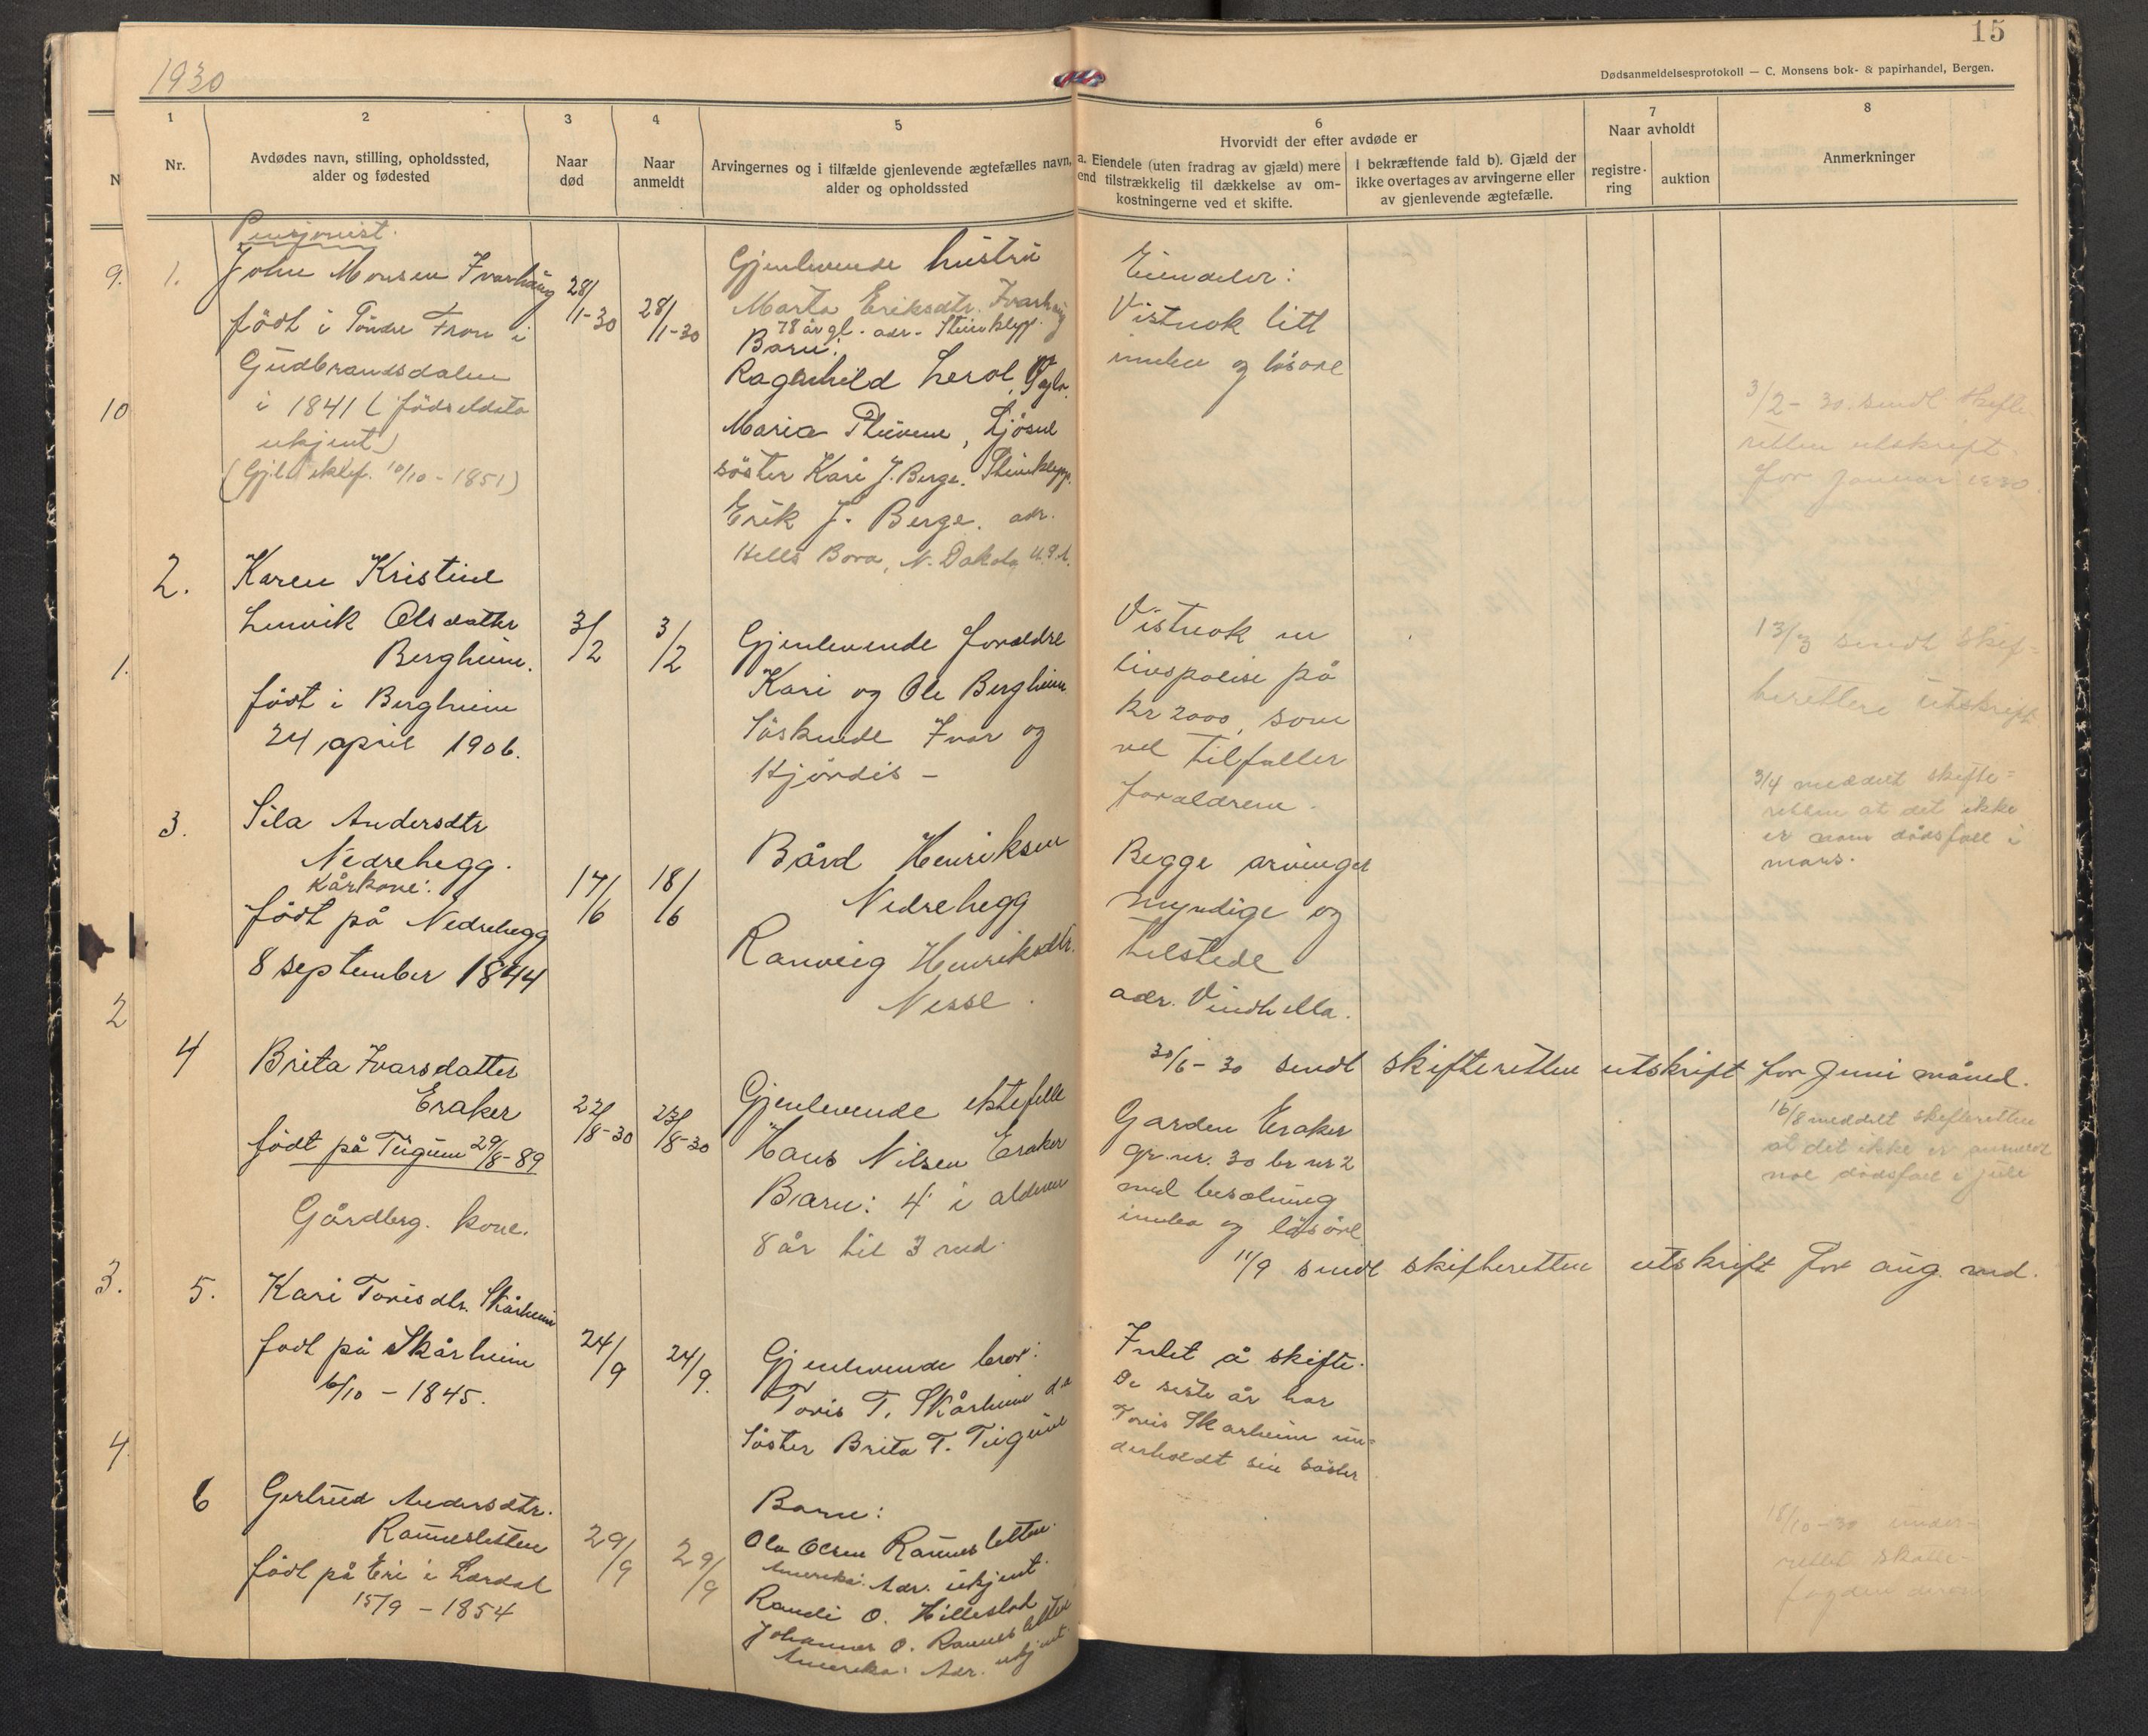 15
1930
Dødsanmeldelsesprotokoll — C. Monsens bok- & papirhandel, Bergen.
1
Nr.
2
Avdødes navn, stilling, opholdssted,
alder og fødested
3
Naar
død
4
Naar
anmeldt
5
Arvingernes og i tilfælde gjenlevende ægtefælles navn,
alder og opholdssted
6
Hvorvidt der efter avdøde er
a. Eiendele (uten fradrag av gjæld) mere
end tilstrækkelig til dækkelse av om-
kostningerne ved et skifte.
I bekræftende fald b). Gjæld der
ikke overtages av arvingerne eller
av gjenlevende ægtefælle.
7
Naar avholdt
registre-
ring
auktion
8
Anmerkninger
N
9.
10
1.
2
3.
4.
1.
Pensjonist.
John Monsen Ivarhaug
født i Søndre Fron i
Gudbrandsdalen
i 1841 (fødseldato
ukjent)
10/10 - 1851)
28/1-30
28/1-30
Gjenlevende hustru
Marta Eriksdtr. Ivarhaug
78 år gl. adr. Steinklepp.
Barn:
Ragnhild
Maria
søster Kari J. Berge. Steinklepp.
Erik J. Berge. adr.
N. Dakota U.S.A.
Eiendeler:
Vistnok litt
innbo og løsøre
3/2 - 30. sendt skifte-
retten utskrift
for Januar 1930.
2.
Karen Kristine
Lenvik Olsdatter
Bergheim.
født i Bergheim
24 april 1906.
3/2
3/2
Gjenlevende foreldre
Kari og Ole Bergheim
Søskende Ivar og
Hjørdis -
Vistnok en
livspolise på
kr 2000, som
vel tilfaller
foreldrene.
13/3 sendt skif=
teretten utskrift
3/4 meddelt skifte=
retten at det ikke
er noen dødsfall i
mars.
3.
Sila Andersdtr
Nedrehegg.
Kårkone.
født på Nedrehegg
8 september 1844
17/6
18/6
Bård Henriksen
Nedrehegg
Ranveig Henriksdtr.
Nesse.
Begge arvinger
myndige og
tilstede
adr. Vindhella.
30/6-30 sendt skifteretten utskrift for Juni måned.
4
Brita Ivarsdatter
Eraker
født på Tugum 29/8-89
Gårdbr. kone.
22/8-30
23/8-30
Gjenlevende ektefelle
Hans Nilsen Eraker
Barn: 4 i alderen
8 år til 3 md.
Garden Eraker
gr.nr. 30 br nr 2
med besetning
innbo og løsøre
16/8 meddelt skifteretten
at det ikke er anmeldt
noe dødsfall i juli
11/9 sendt skifteretten utskrift for aug. md.
5.
Kari Torisdtr. Skårheim
født på Skårheim
6/10 - 1845.
24/9
24/9.
Gjenlevende bror:
Toris T. Skårheim
Søster Brita T. Tugum
Intet å skifte.
De siste år har
Toris Skarheim un=
derholdt sin søster
6
Gertrud Andersdtr.
Raumesletten
født på Eri i Lærdal
15/9 - 1854
29/9
29/9
Barn:
Ola Olsen Raumesletten
Amerika. Adr. ukjent.
Randi O. Hillestad
Johannes O. Raumesletten
Amerika: Adr. ukjent.
18/10-30 under-
rettet skatte-
fogden derom